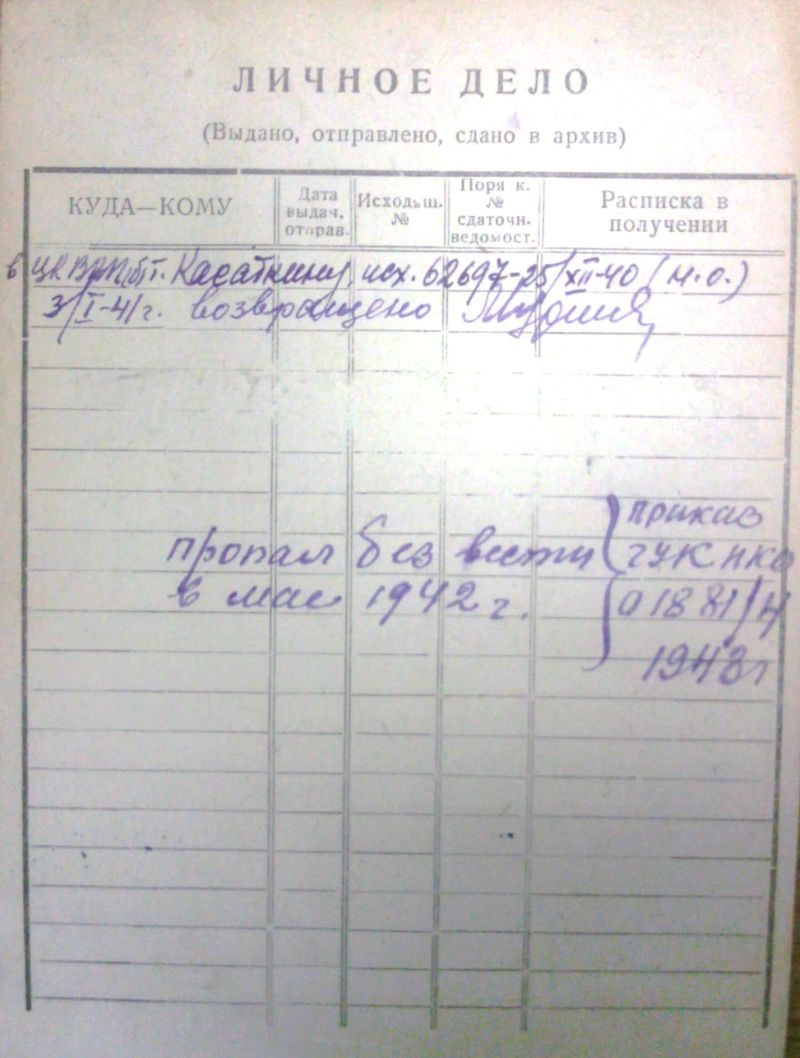 ЛИЧНОЕ ДЕЛО
(Выдано, отправлено, сдано в архив)
КУДА—КОМУ
Дата
выдач.
отправ.
Исходящ.
№
Поря к.
№
сдаточн.
ведомост.
Расписка в
получении
в ЦК ВКП(б) т. Касаткину, исх. 62697-25/XII-40 (н.о.)
3/I-41г. возвращено
приказ
пропал без вести ГУК НКО
в мае 1942 г. 01881/н
1943г